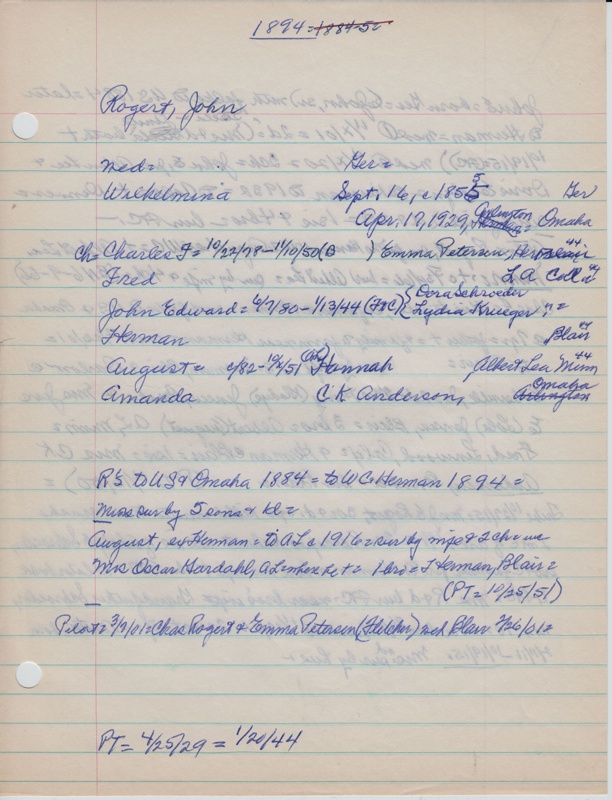 1894 = 1884-5 =
Rogert, John
ned = Ger =
Wilhelmina Sept, 16, c 1855 Ger
Apr, 17, 1929, Arlington = Omaha
Ch = Charles F = 10/22/78 - 11/10/50 (B ) Emma Petersen, Her Blair 44
Fred L A Calif 44
John Edward = 6/7/80 - 1/13/44 (FxC) { Dora Schroeder
Lydia Krueger " =
Herman Blair 44
August = c/82 - 10/ /51 (AL) Hannah Albert Lea Minn 44
Amanda C K Anderson, Arlington Omaha
R's to US & Omaha 1884 = to WC & Herman 1894 =
Miss sur by 5 sons & 1 d =
August, ex Herman = to A L c 1916 = sur by mps & 2 ch = we
Mrs Oscar Hardahl, A L = + = 1 bro = J Herman, Blair =
(PT = 10/25/51)
Pilot = 3/7/01 = Chas Rogert & Emma Petersen (Fletcher) ned Blair 2/26/01 =
PT = 4/25/29 = 1/20/44